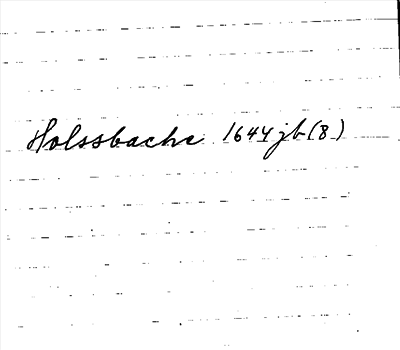 Holssbache 1644 jb (8)